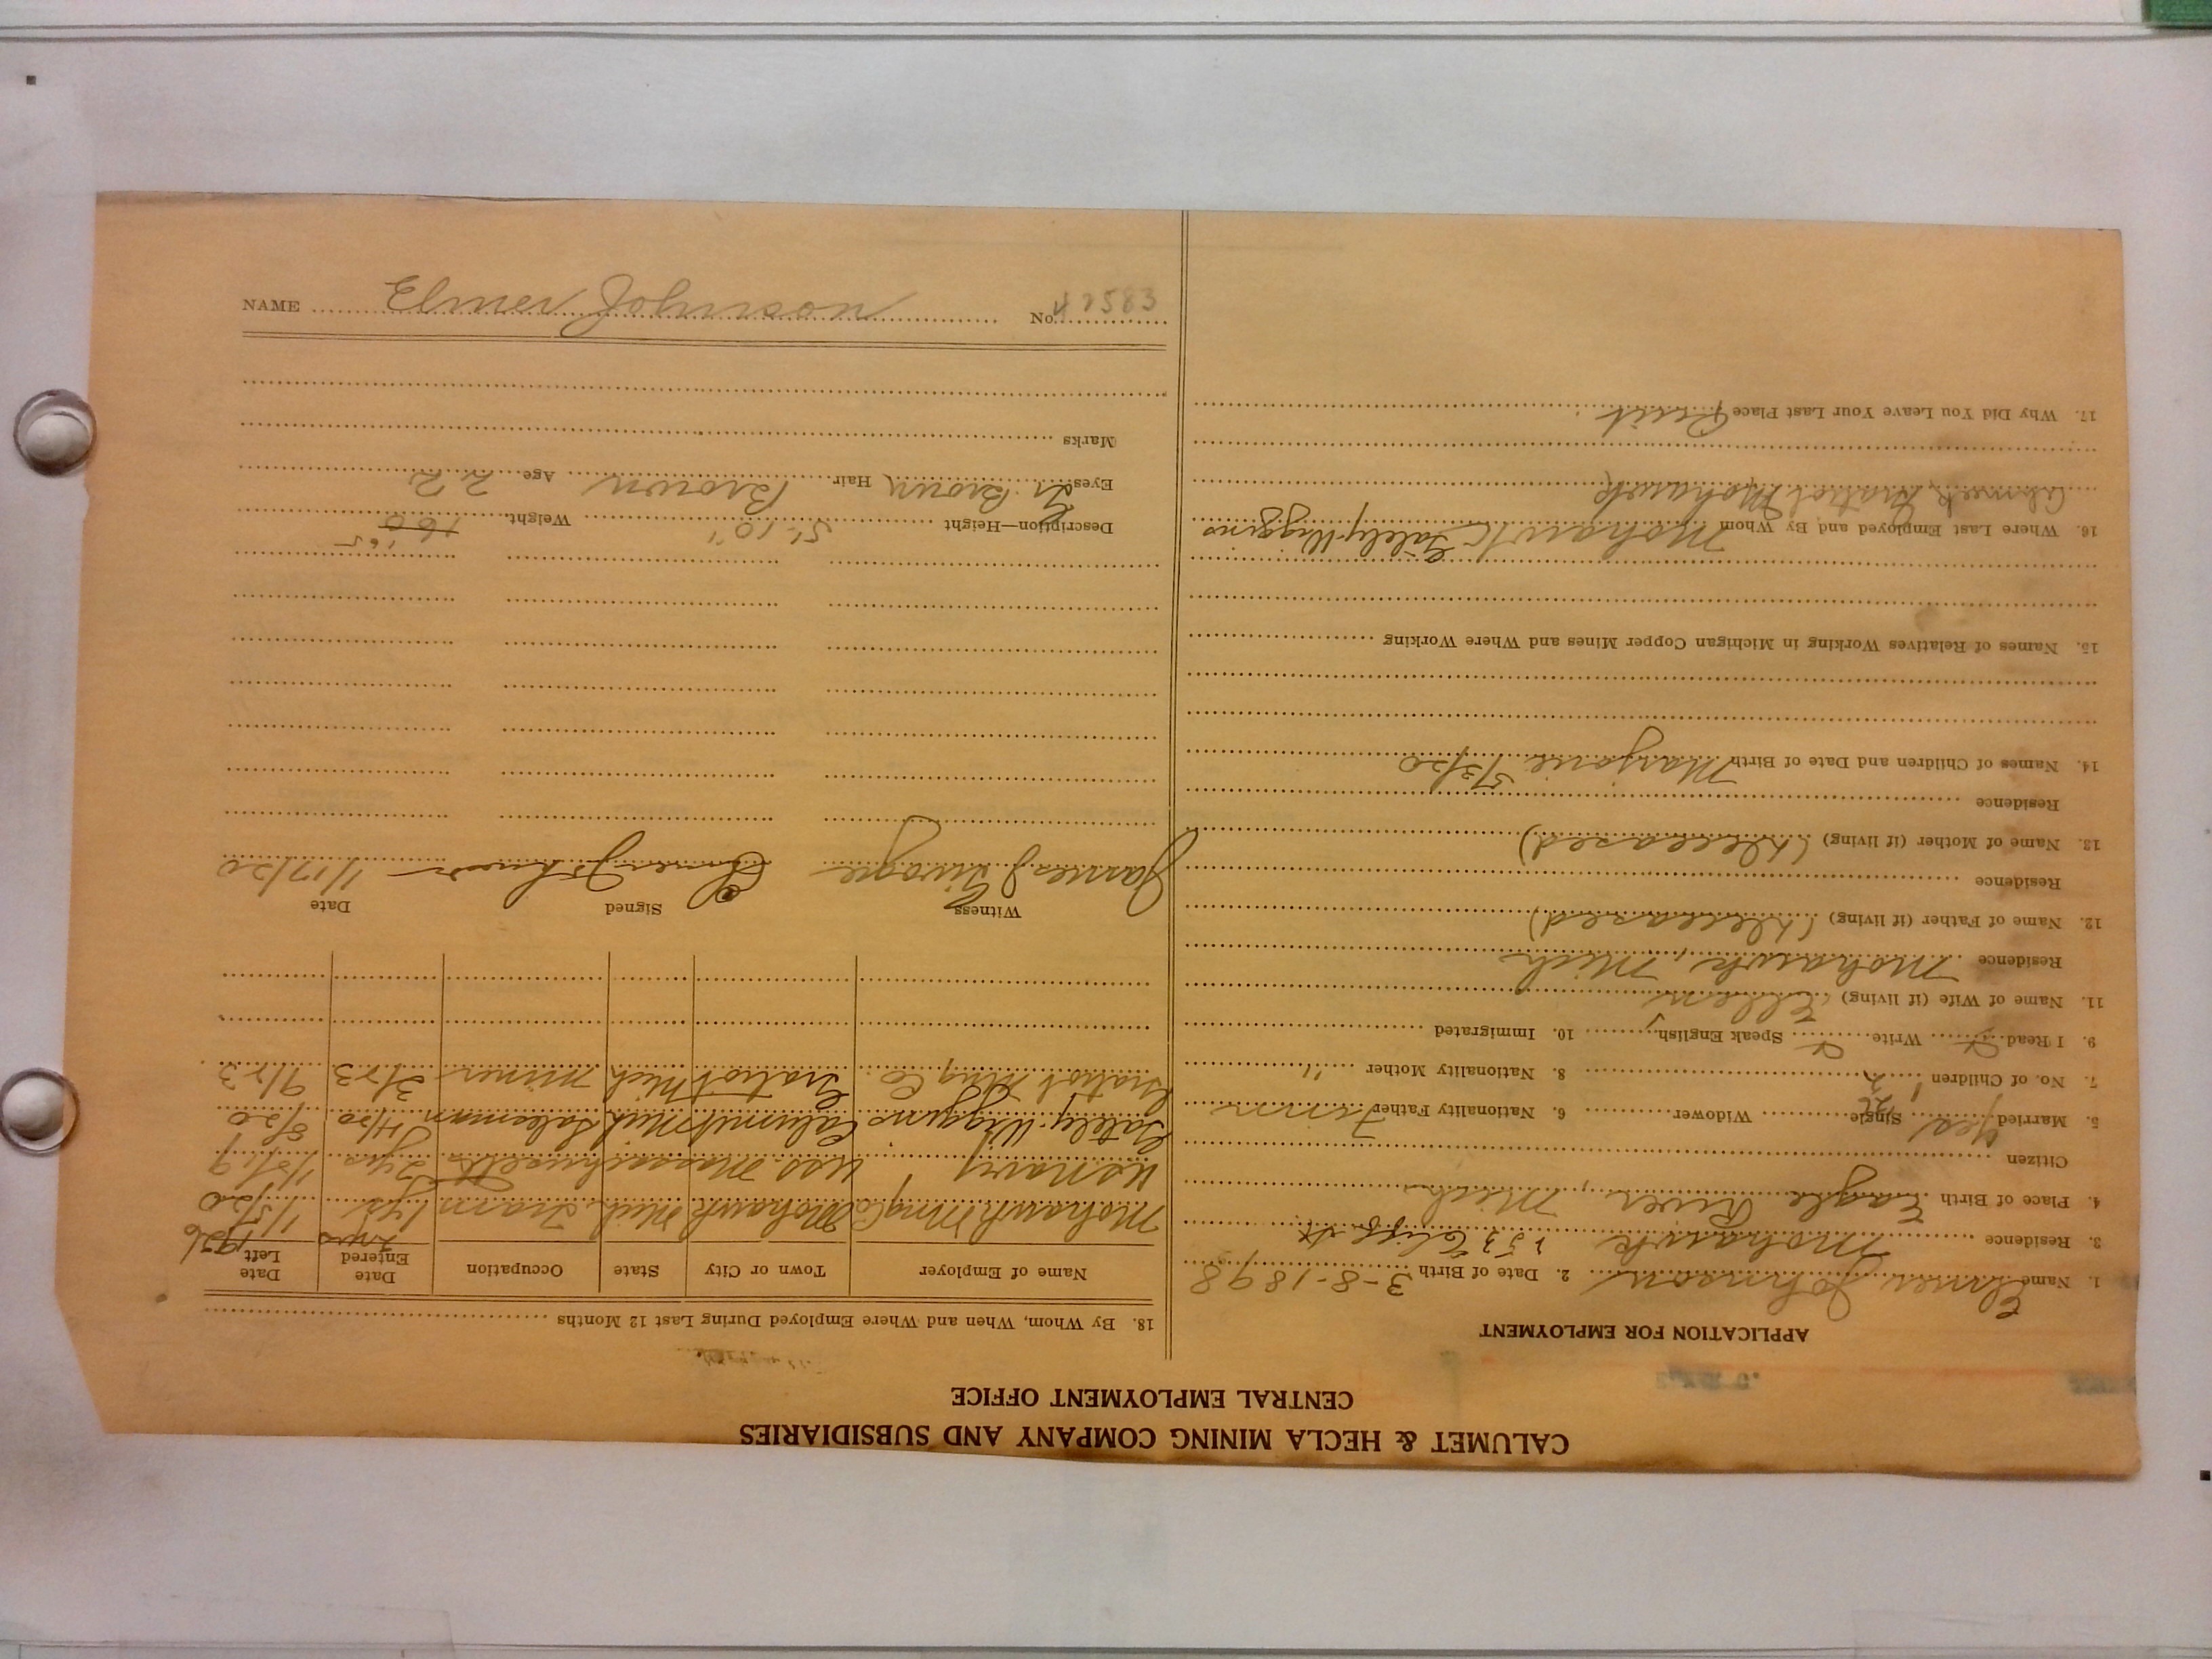 CALUMET & HECLA MINING COMPANY AND SUBSIDIARIES
CENTRAL EMPLOYMENT OFFICE
APPLICATION FOR EMPLOYMENT
1. Name Elmer Johnson 2. Date of Birth 3-8-1898
3. Residence Mohawk 253 Cliff St
4. Place of Birth Eagle River, Mich
Citizen
5. Married Yes Single Widower 6. Nationality Father Finn
7. No. of Children 8. Nationality Mother "
9. I Read Write Speak English 10. Immigrated
11. Name of Wife (if living) Ellen
Residence Mohawk, Mich
12. Name of Father (if living) (deceased)
Residence
13. Name of Mother (if living) (deceased)
Residence
14. Names of Children and Date of Birth Marjorie 5/3/20
15. Names of Relatives Working in Michigan Copper Mines and Where Working
16. Where Last Employed and By Whom Mohawk Gately Wiggins
Ahmeek, Gratiot Mohawk
17. Why Did You Leave Your Last Place Quit
18. By Whom, When and Where Employed During Last 12 Months
Name of Employer Town or City State Occupation Date Entered Date Left
2 yrs 1926
Mohawk Mng Co Mohawk Mich. Tram 1 yr 1/5/20
US Navy USS. Massachusetts 2 yrs 1/5/19
Gately Wiggins Calumet Mich Salesman 4/20 8/20
Gratiot Mng Co. Gratiot Mich Miner 3/23 9/23
Witness Signed Date
James J Elmer Johnson 1/17/20
Description—Height 5'-10" Weight 160 165
Eyes Brown Hair Brown Age 22
Marks
NAME Elmer Johnson No. 42583